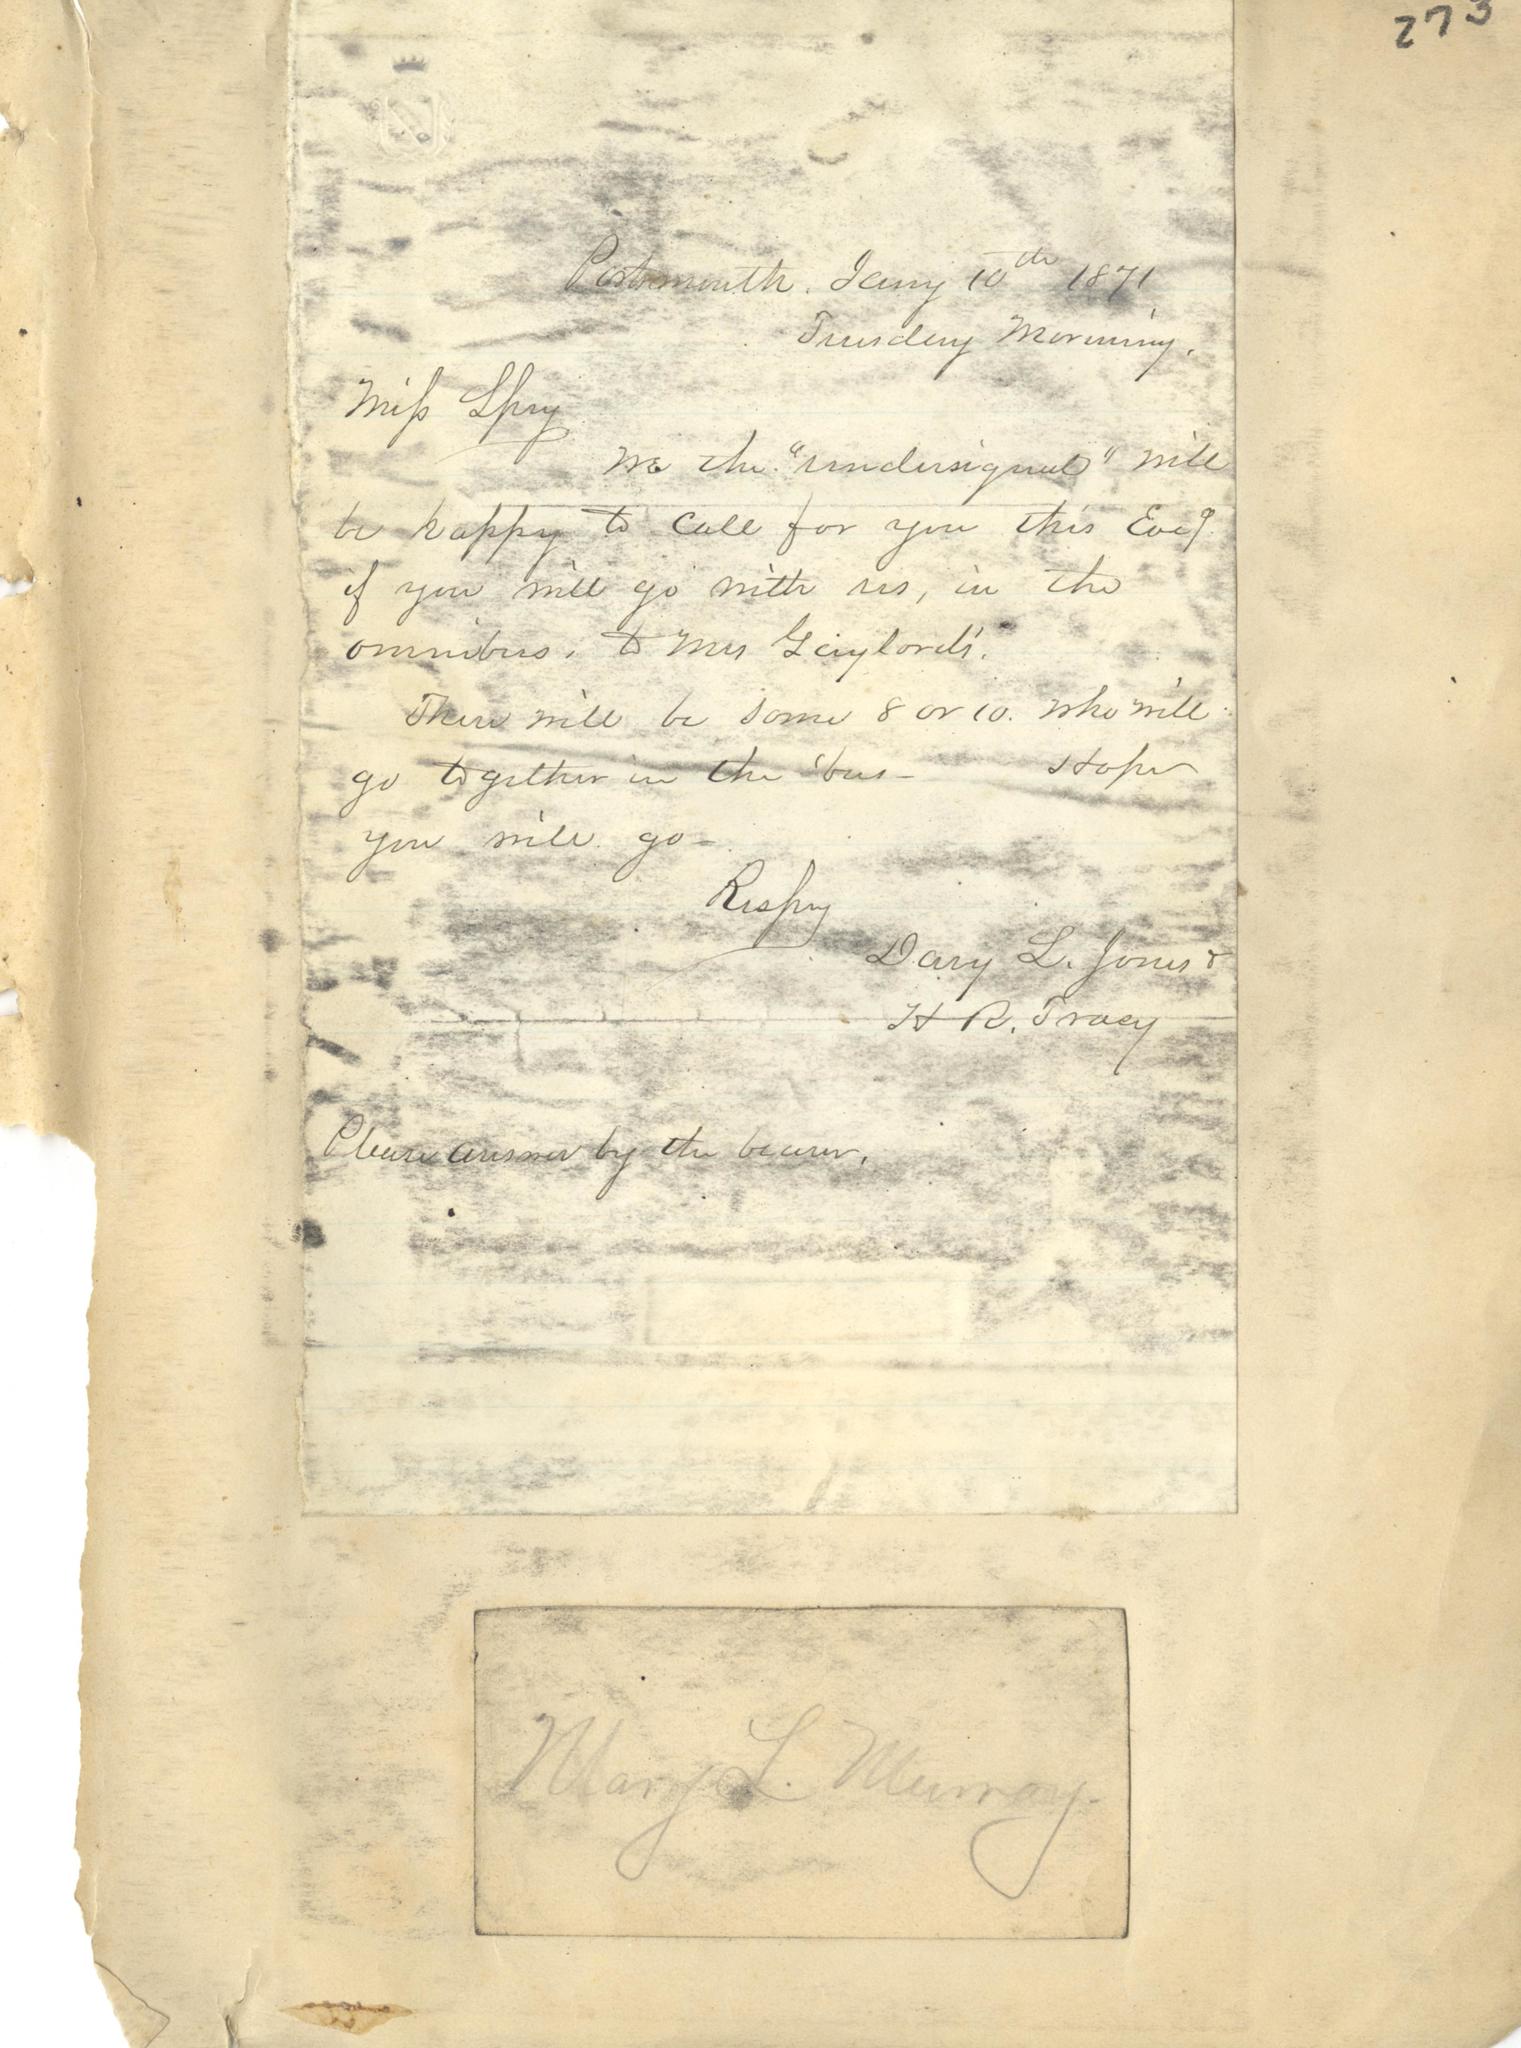 273
Portsmouth. Jany 10th 1871
Tuesday Morning.
Miss Spry
We the "undersigned" will
be happy to call for you this Eveg
if you will go with us, in the
omnibus, to Mrs Gaylord's.
There will be some 8 or 10. who will
go together in the 'bus - Hope
you will go -
Respy
Davy L. Jones &
H R. Tracy
Please answer by the bearer.
Mary L. Murray.